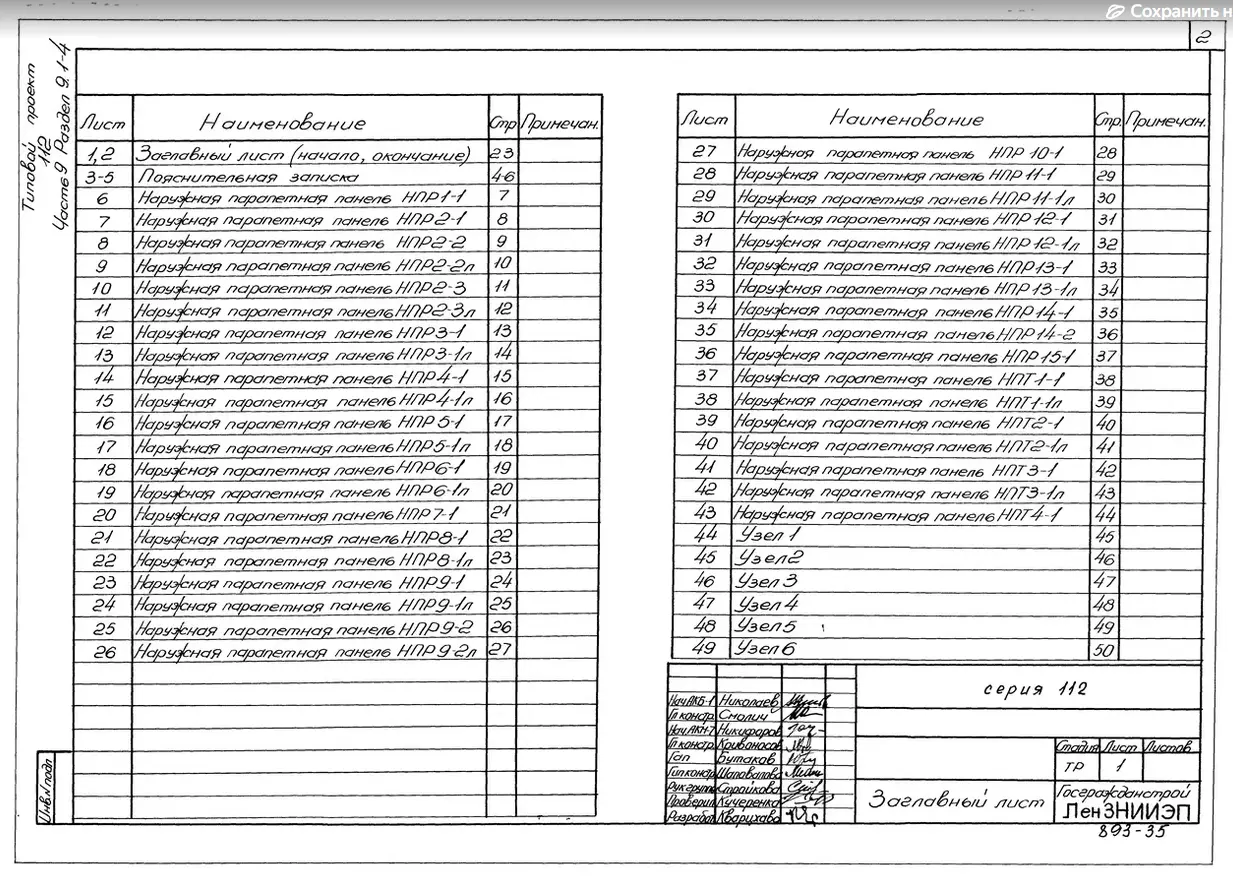 Сохранить н
2
Типовой проект
112
Часть 9 Раздел 9.1-4
Лист Наименование Стр. Примечан.
1,2 Заглавный лист (начало, окончание) 2 3
3-5 Пояснительная записка 4-6
6 Наружная парапетная панель НПР1-1 7
7 Наружная парапетная панель НПР2-1 8
8 Наружная парапетная панель НПР2-2 9
9 Наружная парапетная панель НПР2-2л 10
10 Наружная парапетная панель НПР2-3 11
11 Наружная парапетная панель НПР2-3л 12
12 Наружная парапетная панель НПР3-1 13
13 Наружная парапетная панель НПР3-1л 14
14 Наружная парапетная панель НПР4-1 15
15 Наружная парапетная панель НПР4-1л 16
16 Наружная парапетная панель НПР5-1 17
17 Наружная парапетная панель НПР5-1л 18
18 Наружная парапетная панель НПР6-1 19
19 Наружная парапетная панель НПР6-1л 20
20 Наружная парапетная панель НПР7-1 21
21 Наружная парапетная панель НПР8-1 22
22 Наружная парапетная панель НПР8-1л 23
23 Наружная парапетная панель НПР9-1 24
24 Наружная парапетная панель НПР9-1л 25
25 Наружная парапетная панель НПР9-2 26
26 Наружная парапетная панель НПР9-2л 27
Инв.№подл
Лист Наименование Стр. Примечан.
27 Наружная парапетная панель НПР10-1 28
28 Наружная парапетная панель НПР11-1 29
29 Наружная парапетная панель НПР11-1л 30
30 Наружная парапетная панель НПР12-1 31
31 Наружная парапетная панель НПР12-1л 32
32 Наружная парапетная панель НПР13-1 33
33 Наружная парапетная панель НПР13-1л 34
34 Наружная парапетная панель НПР14-1 35
35 Наружная парапетная панель НПР14-2 36
36 Наружная парапетная панель НПР15-1 37
37 Наружная парапетная панель НПТ1-1 38
38 Наружная парапетная панель НПТ1-1л 39
39 Наружная парапетная панель НПТ2-1 40
40 Наружная парапетная панель НПТ2-1л 41
41 Наружная парапетная панель НПТ3-1 42
42 Наружная парапетная панель НПТ3-1л 43
43 Наружная парапетная панель НПТ4-1 44
44 Узел 1 45
45 Узел 2 46
46 Узел 3 47
47 Узел 4 48
48 Узел 5 49
49 Узел 6 50
Нач.АКБ-1 Николаев
Гл констр. Смолич
Нач.АКН-7 Никифоров
Гл констр. Кривоносов
Гап Бутаков
Гип констр Шаповалова
Рук групп Стройкова
Проверил Кучеренко
Разработ Кварихава
серия 112
Стадия Лист Листов
ТР 1
Заглавный лист
Госгражданстрой
ЛенЗНИИЭП
893-35